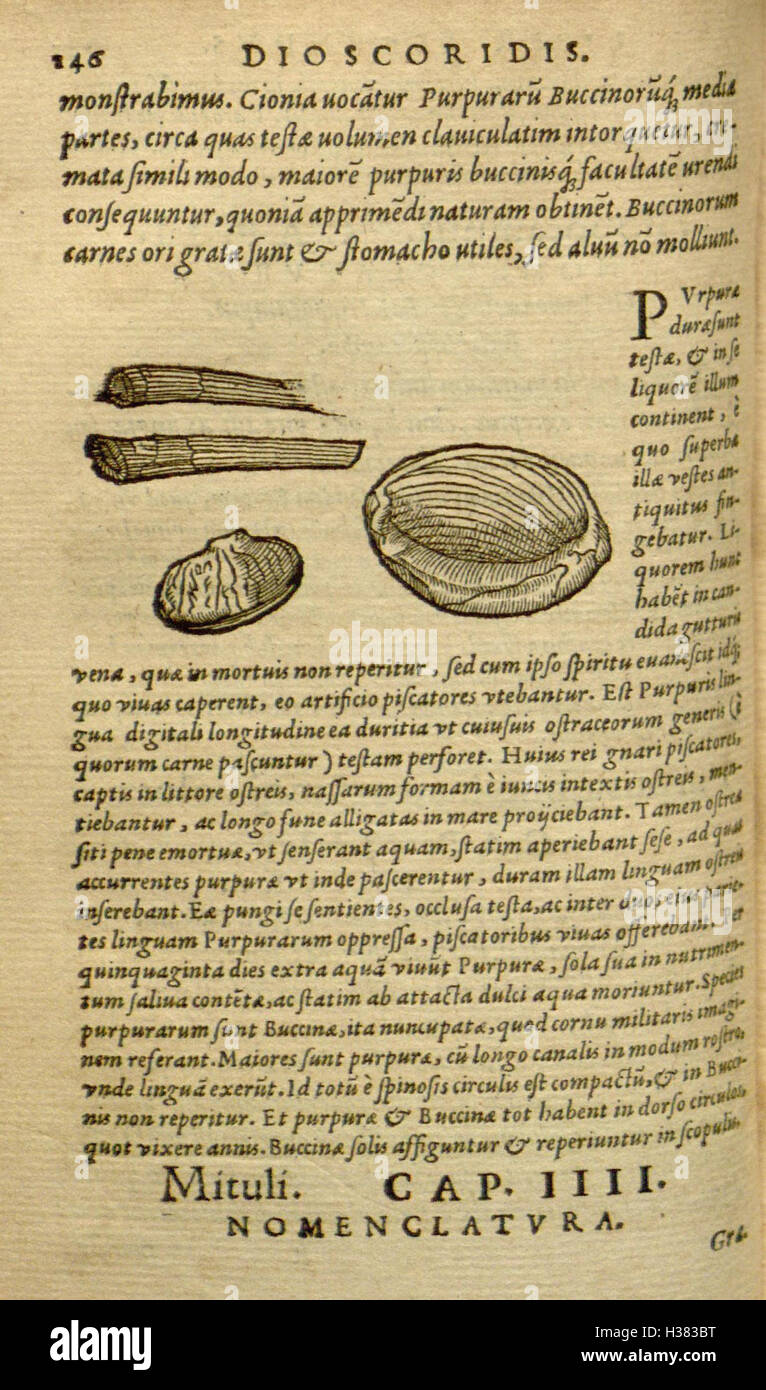 146 DIOSCORIDIS.
monſtrabimus. Cionia uocātur Purpurarū Buccinorūq́; mediæ
partes, circa quas teſtæ uolumen clauiculatim intorquetur, cre-
mata ſimili modo, maiorē purpuris buccinisq́; facultatē urendi
conſequuntur, quoniā apprimēdi naturam obtinēt. Buccinorum
carnes ori gratæ ſunt & ſtomacho utiles, ſed aluū nō molliunt.
PVrpuræ
duræ ſunt
teſtæ, & in ſe
liquorē illum
continent, è
quo ſuperbæ
illæ veſtes an-
tiquitus fin-
gebatur. Li-
quorem hunc
habēt in can-
dida gutturis
vena, quæ in mortuis non reperitur, ſed cum ipſo ſpiritu euaneſcit idq́;
quo viuas caperent, eo artificio piſcatores vtebantur. Eſt Purpuris lin-
gua digitali longitudine ea duritia vt cuiuſuis oſtraceorum generis (è
quorum carne paſcuntur) teſtam perforet. Huius rei gnari piſcatores,
captis in littore oſtreis, naſſarum formam è iuncis intextis oſtreis, men-
tiebantur, ac longo fune alligatas in mare proijciebant. Tamen oſtrea
ſiti pene emortuæ, vt ſenſerant aquam, ſtatim aperiebant ſeſe, ad quas
accurrentes purpuræ vt inde paſcerentur, duram illam linguam oſtreis
inſerebant. Eæ pungi ſe ſentientes, occluſa teſta, ac inter duos eius parie-
tes linguam Purpurarum oppreſſa, piſcatoribus viuas offerebant. et
quinquaginta dies extra aquā viuūt Purpuræ, ſola ſua in nutrimen-
tum ſaliua contētæ, ac ſtatim ab attacta dulci aqua moriuntur. Species
purpurarum ſunt Buccinæ, ita nuncupatæ, quod cornu militaris imagi-
nem referant. Maiores ſunt purpuræ, cū longo canalis in modum roſtro,
vnde linguā exerūt. Id totū è ſpinoſis circulis eſt compactū, & in Bucci-
nis non reperitur. Et purpuræ & Buccinæ tot habent in dorſo circulos,
quot vixere annis. Buccinæ ſolis affiguntur & reperiuntur in ſcopulis.
Mituli. CAP. IIII.
NOMENCLATVRA.
Græ.
alamy
a
alamy
Image ID: H383BT
www.alamy.com